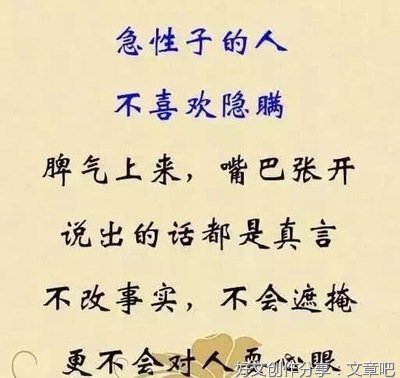 急性子的人
不喜欢隐瞒
脾气上来，嘴巴张开
说出的话都是真言
不改事实，不会遮掩
更不会对人耍心眼
好文创作分享－文章吧